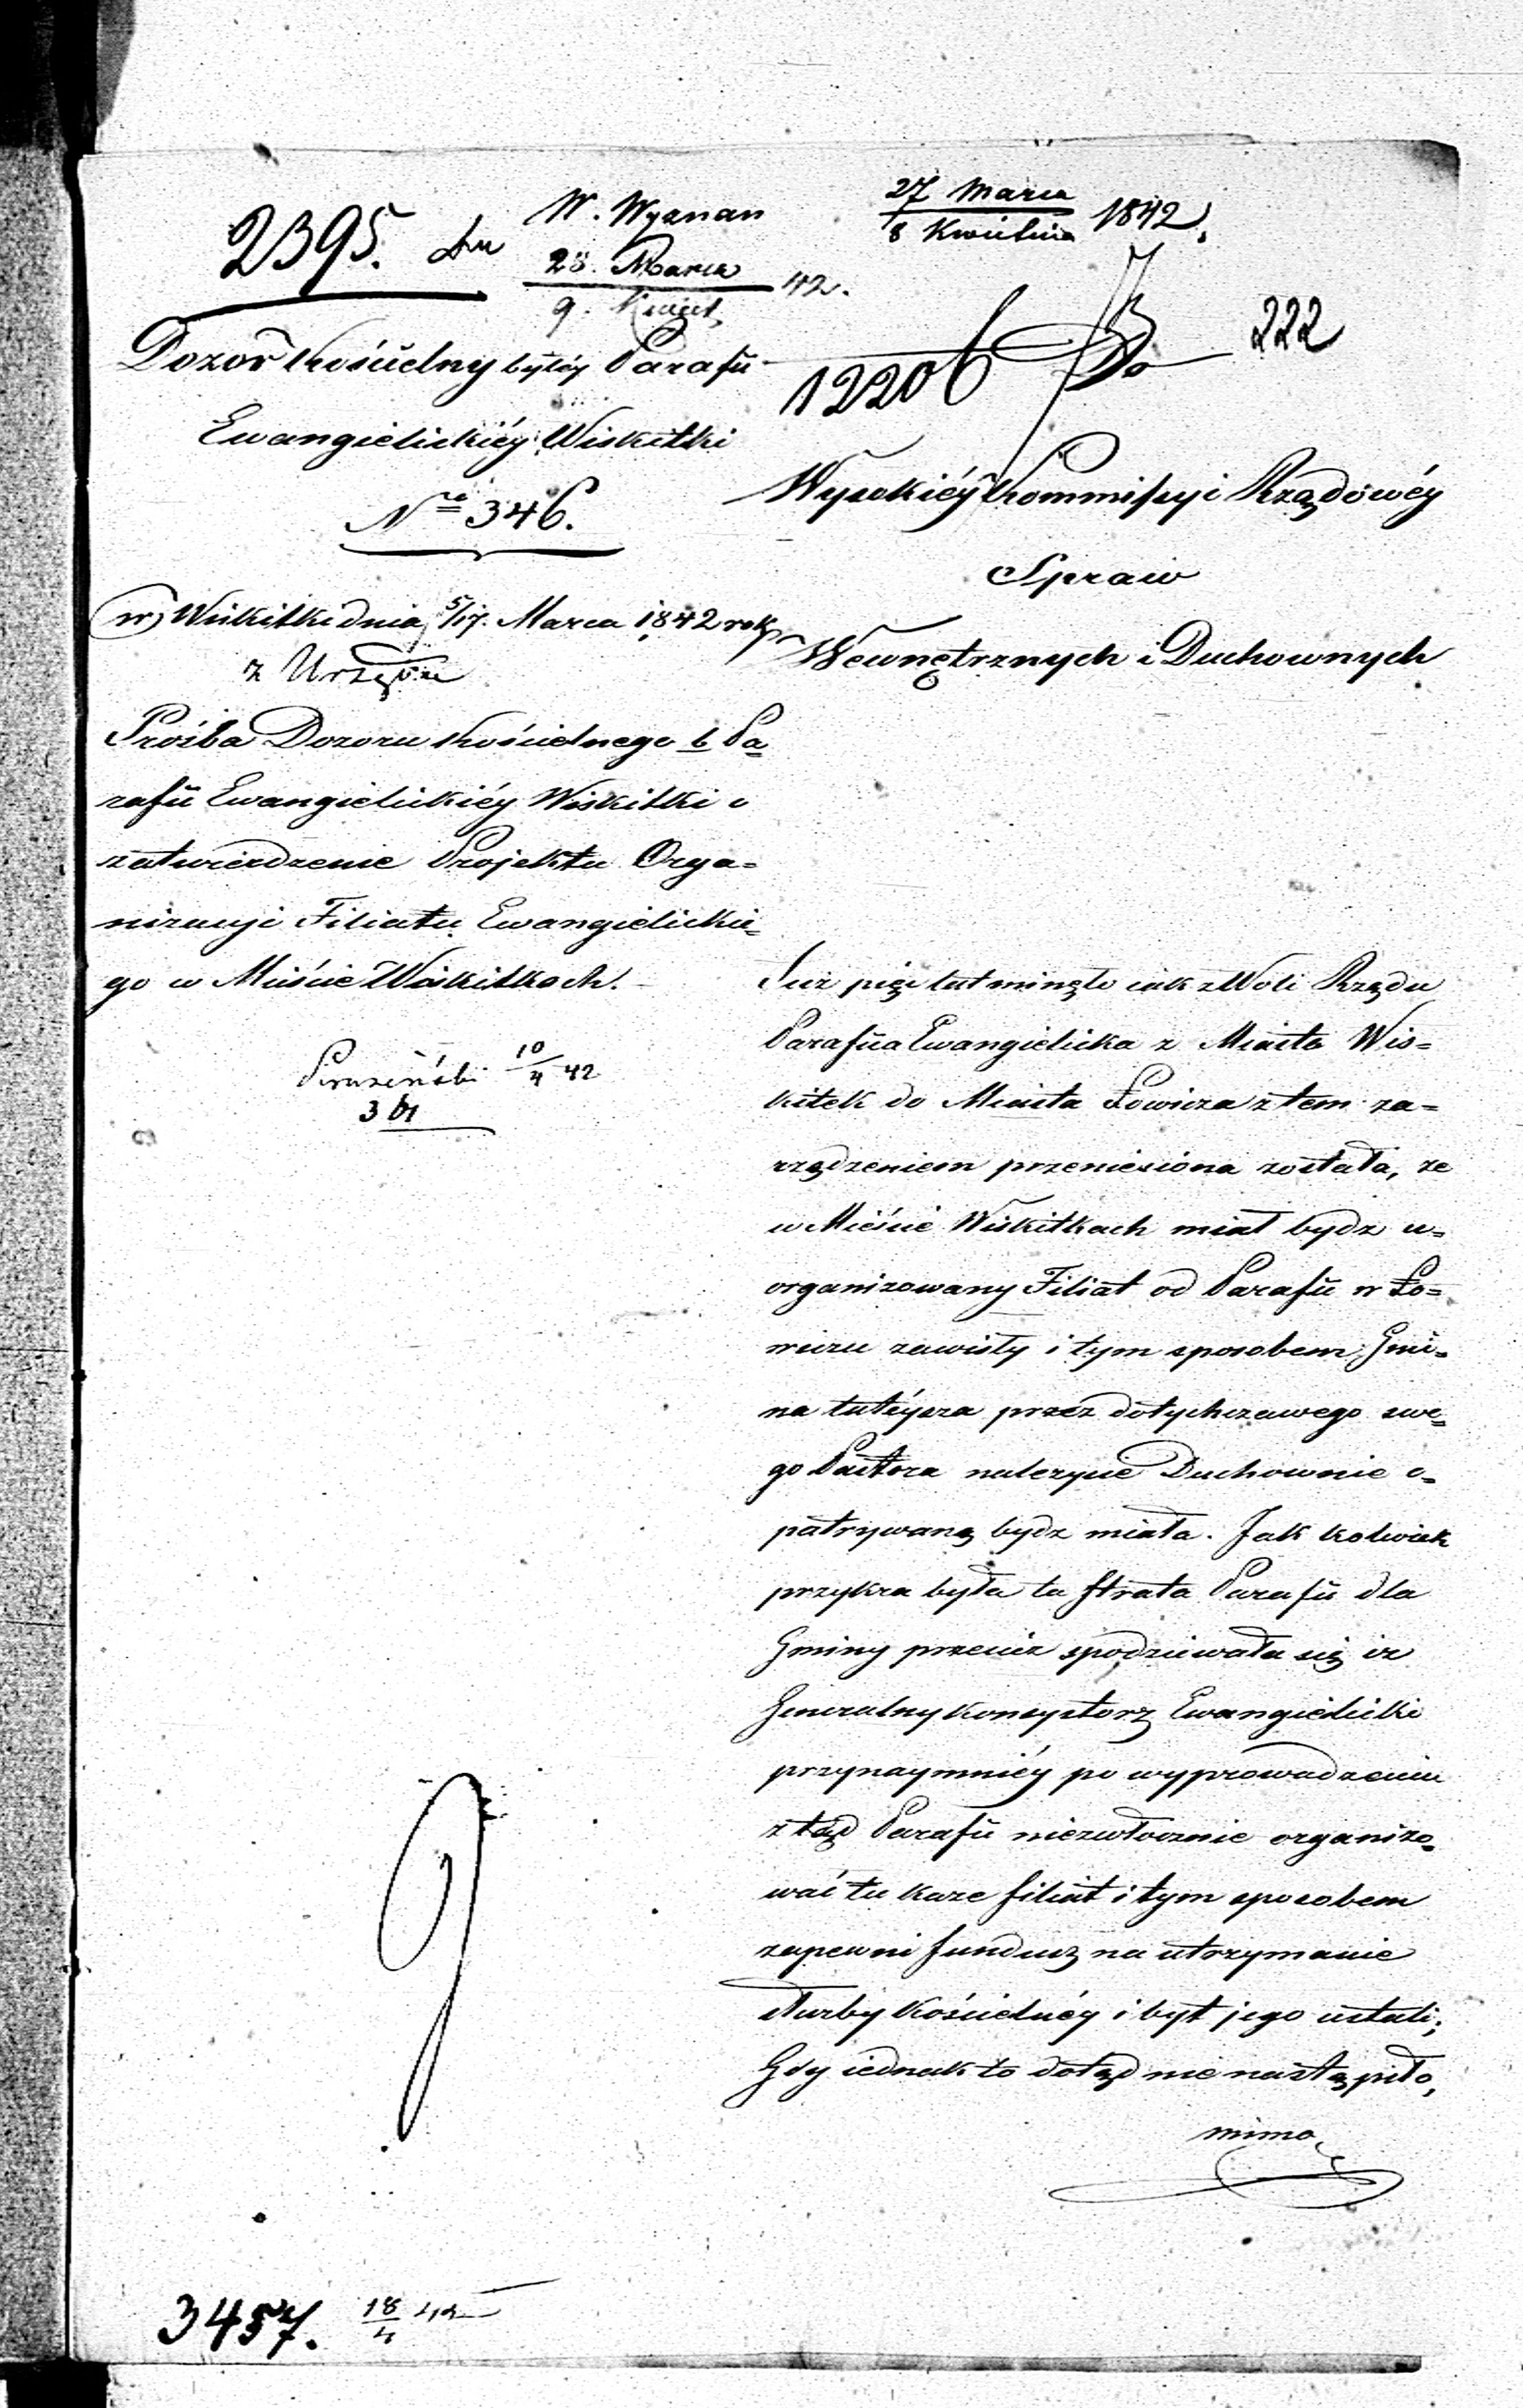 2395. dn W. Wyznan
28. Marca 42.
9. Kwiet.
27 Marca 1842.
8 Kwietnia
12206
Do
222
Dozór Kościelny byłéy Parafii
Ewangielickiéy Wiskitki
No 346.
w Wiskitki dnia 5/17. Marca 1842 roku
z Urzędu
Prośba Dozoru Kościelnego b Pa=
rafii Ewangielickiéy Wiskitki o
zatwierdzenie Projektu Orga=
nizacyi Filiału Ewangielickie=
go w Mieście Wiskitkach.
10/4 42
Wysokiéy Kommissyi Rządowéy
Spraw
Wewnętrznych i Duchownych
Już pięć lat minęło iak z Woli Rządu
Parafiia Ewangielicka z Miasta Wis=
kitek do Miasta Łowicza z tem za=
rządzeniem przeniesiona została, że
w Mieście Wiskitkach miał bydz u=
organizowany Filiał od Parafii w Ło=
wiczu zawisły i tym sposobem Gmi=
na tutéysza przez dotychczawego swe=
go Pastora należycie Duchownie o=
patrywaną bydz miała. Jak kolwiek
przykra była ta strata Parafii dla
Gminy przecież spodziewała się iż
Generalny Konsystorz Ewangielicki
przynaymniéy po wyprowadzeniu
z tąd Parafii niezwłocznie organizo=
wać tu każe filiał i tym sposobem
zapewni fundusz na utrzymanie
służby Kościelnéy i byt jego ustali;
Gdy iednak to dotąd nie nastąpiło,
mimo
3457. 18/4 42